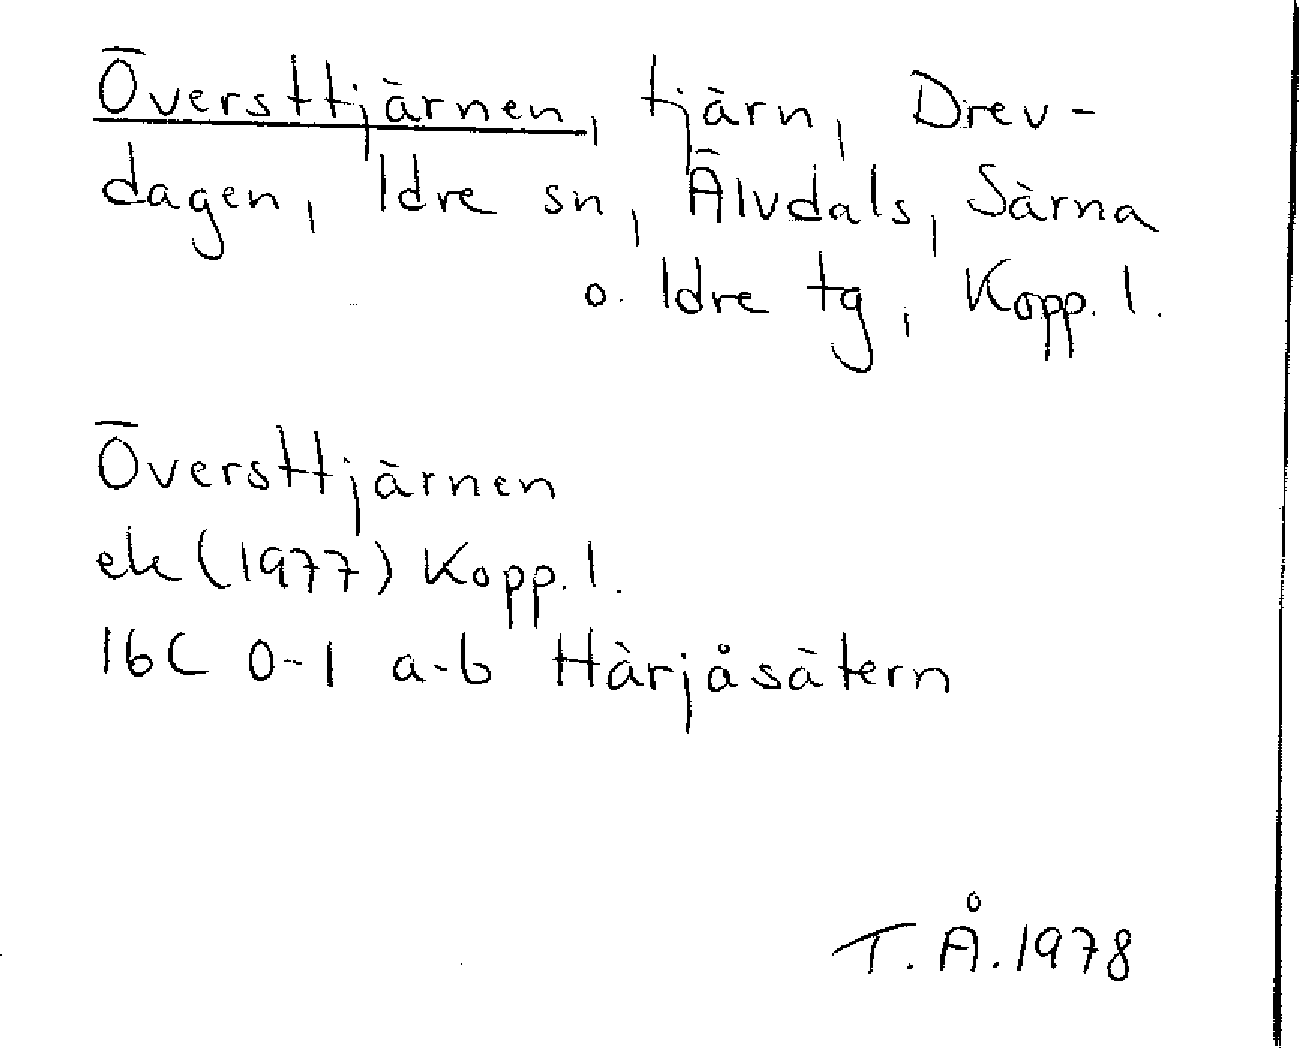 Översttjärnen, tjärn, Drev-
dagen, Idre sn, Älvdals, Särna
o. Idre tg, Kopp. l.
Översttjärnen
ek (1977) Kopp. l.
16C 0-1 a-b Härjåsätern
T. Å. 1978